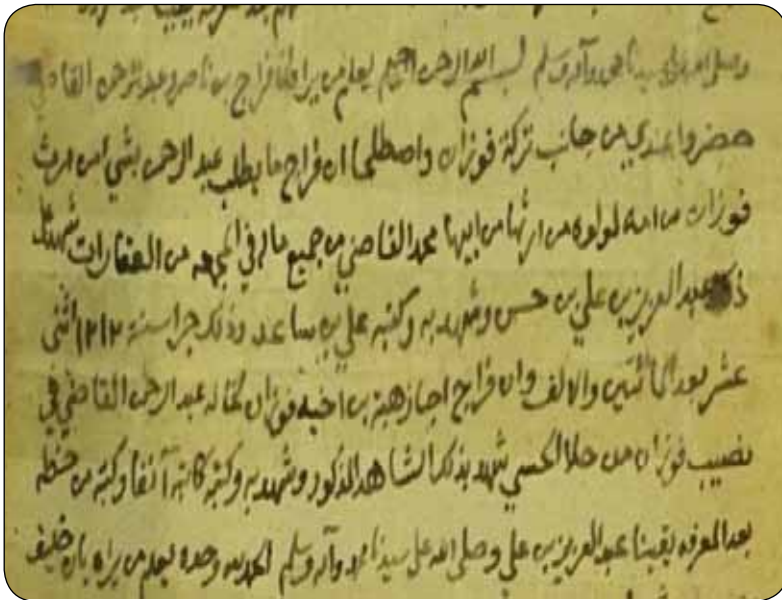 وصلى الله على سيدنا محمد وآله وسلم بسم الله الرحمن الرحيم يعلم من يراه بان فراج بن ناصر وعبد الرحمن القاضي
حضروا عندي من جانب تركة فوزان واصطلحا ان فراج ما يطلب عبد الرحمن بشي من ارث
فوزان من امه لولوه من ارثها من ابيها محمد القاضي من جميع ماله في المجمعه من العقارات شهد على
ذلك عبد العزيز بن علي بن حسن وشهد به وكتبه علي بن ساعد وذلك جرا سنة ١٢١٢ اثنى
عشر بعد المائتين والالف وان فراج اجاز هبة بن اخيه فوزان لخاله عبد الرحمن القاضي في
نصيب فوزان من حلال الحسي شهد بذلك الشاهد المذكور وشهد به وكتبه كاتبه آنفا وكتبه من خطه
بعد المعرفه يقينا عبد العزيز بن علي وصلى الله على سيدنا محمد وآله وسلم الحمد لله وحده يعلم من يراه بان خليف